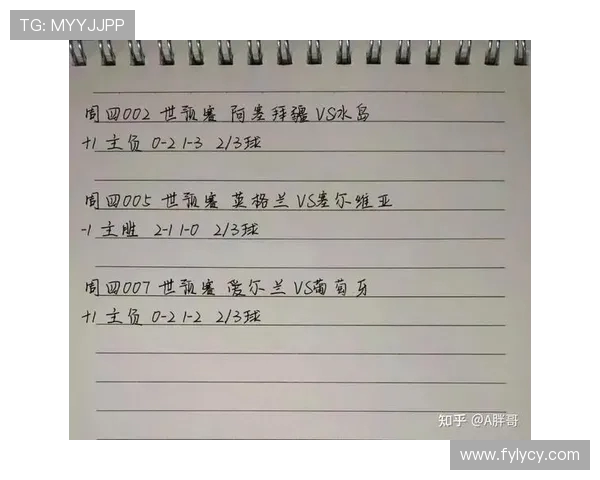 TG: MYYJJPP
周四002 世预赛 阿塞拜疆 VS冰岛
+1 主负 0-2 1-3 2/3球
周四005 世预赛 英格兰 VS塞尔维亚
-1 主胜 2-1 1-0 2/3球
周四007 世预赛 爱尔兰 VS葡萄牙
+1 主负 0-2 1-2 2/3球
知乎 @A胖哥
www.fylycy.com